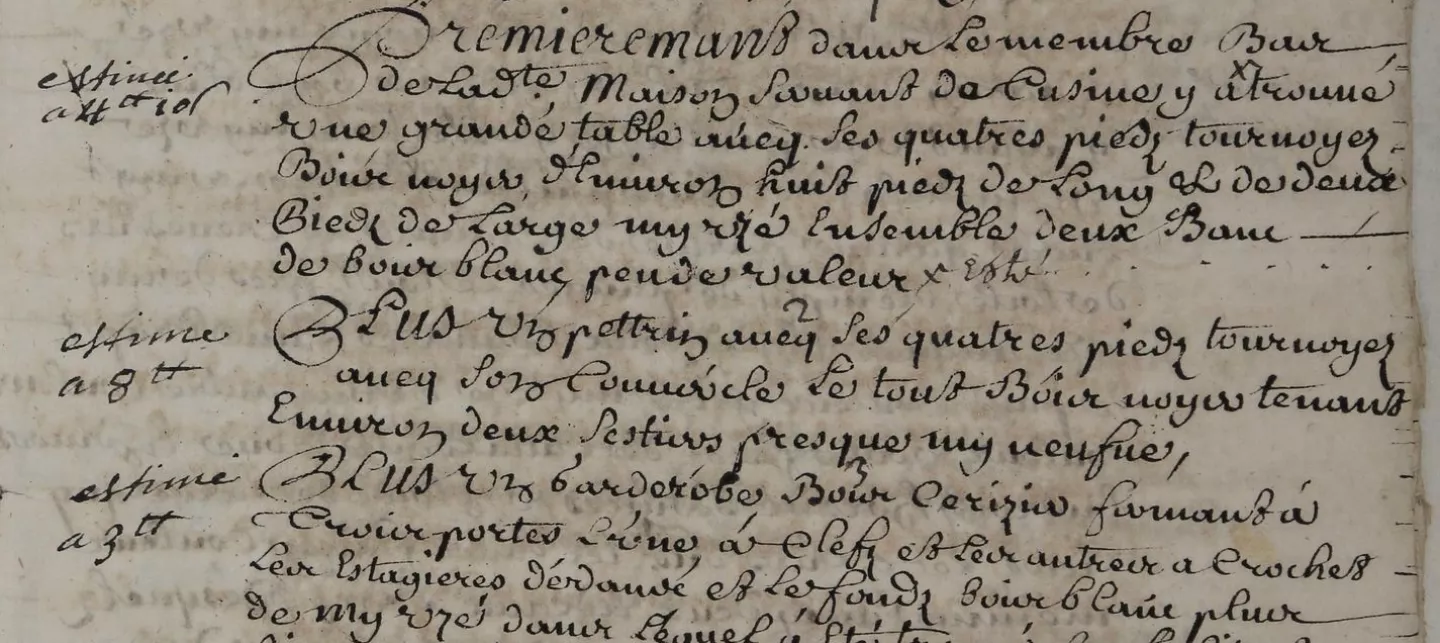 Premieremant dans le membre Bas
estimé
de lad.te Maison servant de Cusine y a trouvé
a 4 tt 10 s
Une grande table avecq ses quatres piedz tournoyez
Bois noyer d'Environ huit piedz de Long & de deux
Piedz de Large my uzé Ensemble deux Banc
de bois blanc peu de valeur x
PLUS Un pettrin avecq ses quatres piedz tournoyez
estime
a 8 tt
avecq son Couvercle le tout Bois noyer tenant
Environ deux sestiers presque my neufve,
PLUS Un Garderobe Bois Cerizier fermant à
estimé
a 3 tt
Trois portes L'une à Clefz et Les autres a Crochet
Les Estagieres dedans et le fondz bois blanc plus
de my uzé dans lequel